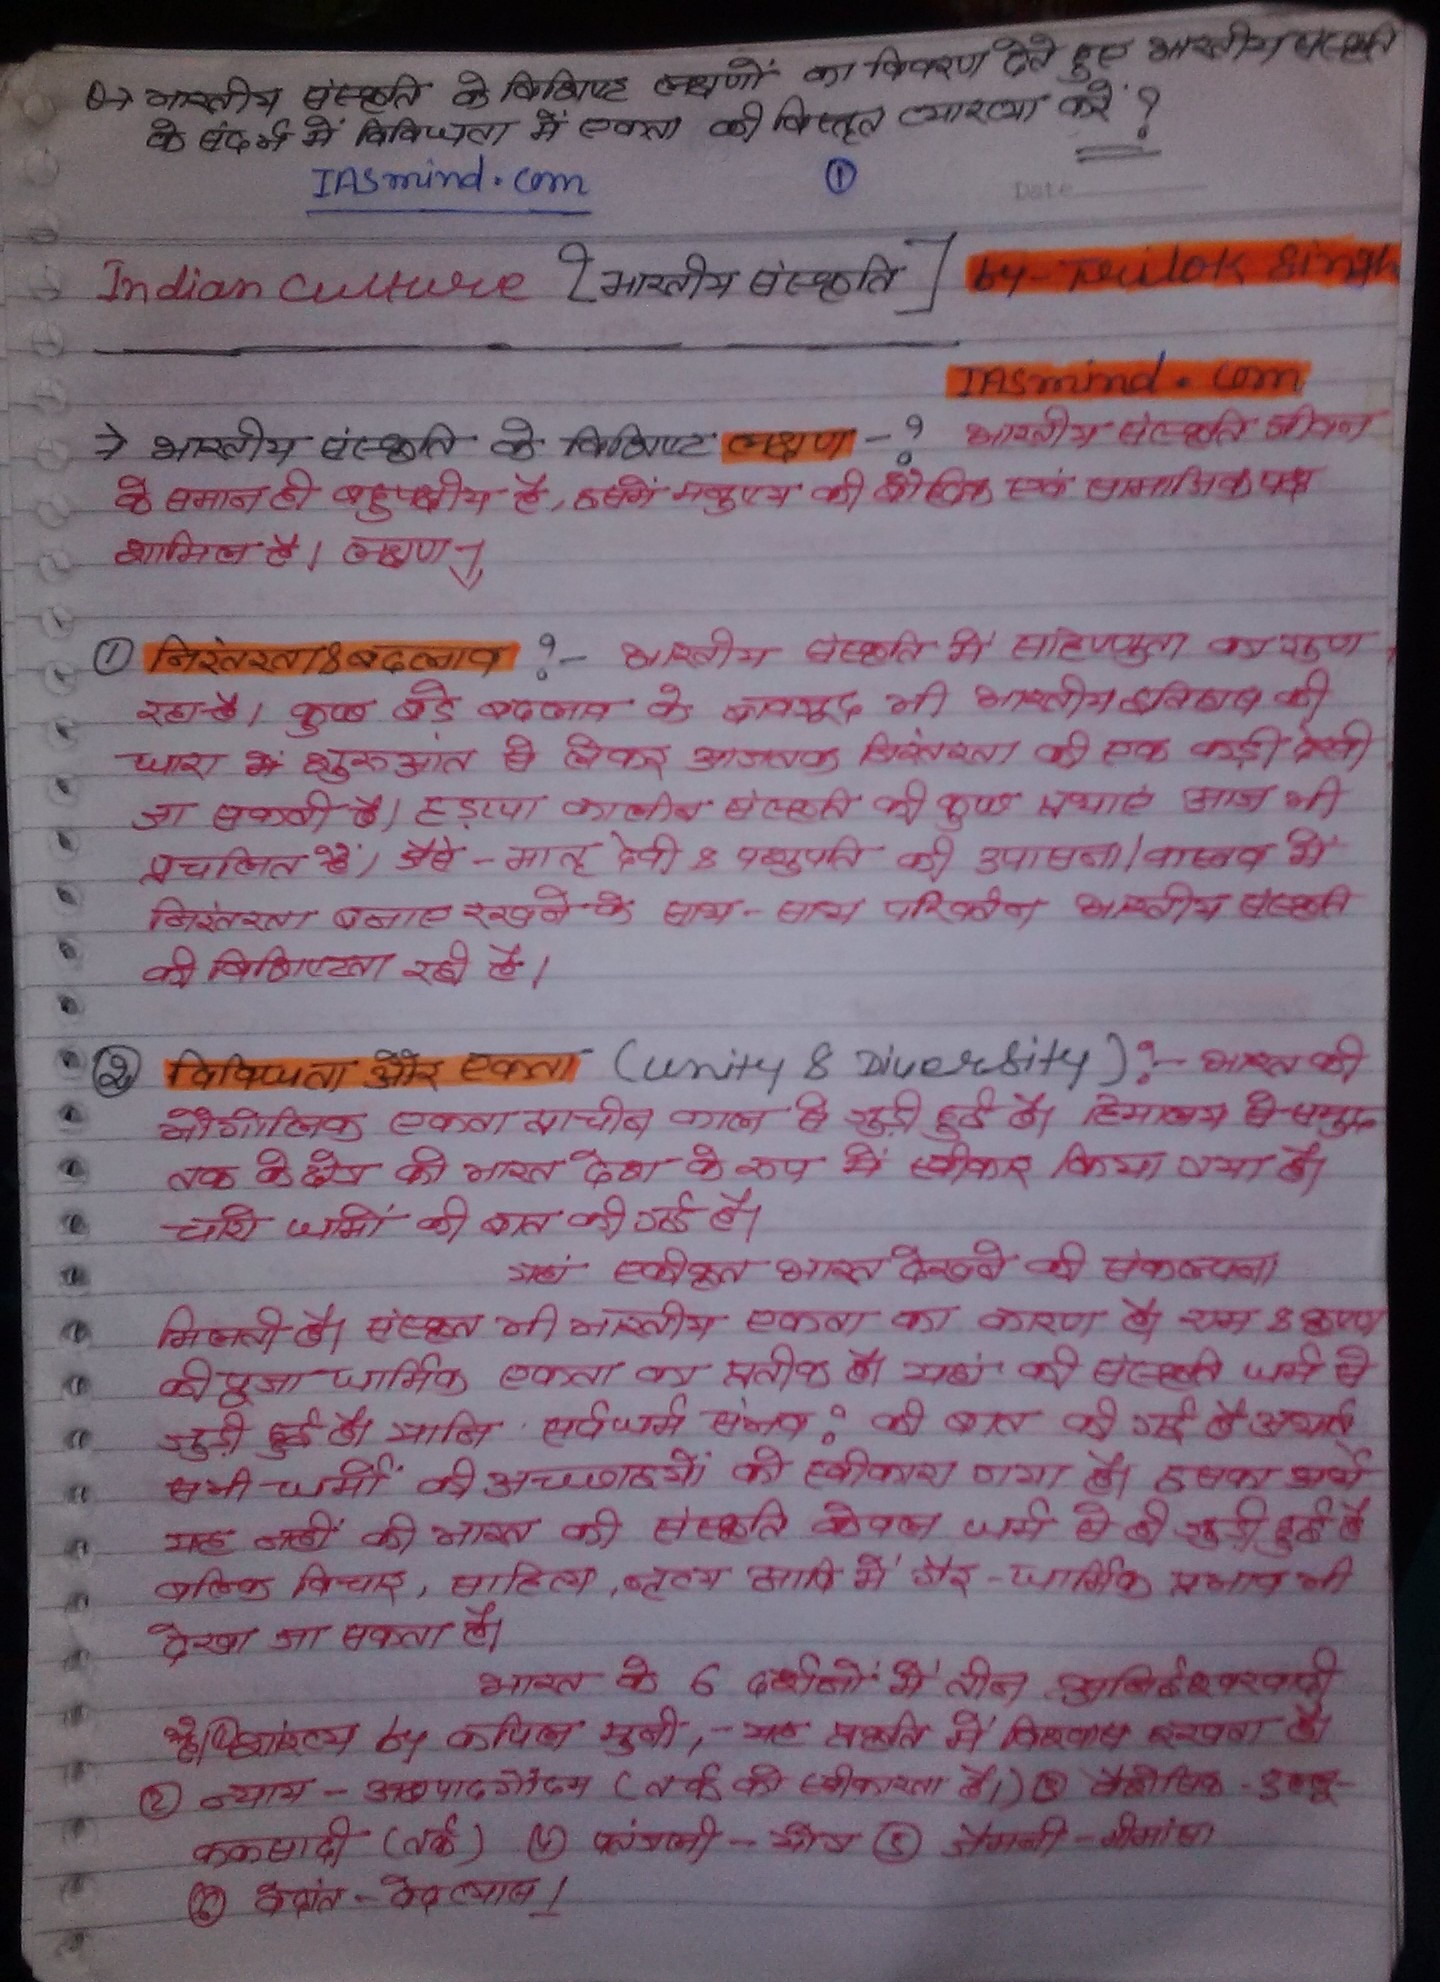 Q→ भारतीय संस्कृति के विशिष्ट लक्षणों का विवरण देते हुए भारतीय संस्कृति
के संदर्भ में विविधता में एकता की विस्तृत व्याख्या करें ?
IASmind.com ①
Date
Indian Culture [भारतीय संस्कृति] by-Trilok Singh
IASmind.com
→ भारतीय संस्कृति के विशिष्ट लक्षण -? भारतीय संस्कृति जीवन
के समान ही बहुपक्षीय है, इसमें मनुष्य की बौद्धिक एवं सामाजिक पक्ष
शामिल है। लक्षण
① निरंतरता & बदलाव ?- भारतीय संस्कृति में सहिष्णुता का गुण
रहा है। कुछ बड़े बदलाव के बावजूद भी भारतीय इतिहास की
धारा में शुरुआत से लेकर आजतक निरंतरता की एक कड़ी देखी
जा सकती है। हड़प्पा कालीन संस्कृति की कुछ प्रथाएं आज भी
प्रचलित हैं, जैसे - मातृ देवी & पशुपति की उपासना। वास्तव में
निरंतरता बनाए रखने के साथ-साथ परिवर्तन भारतीय संस्कृति
की विशिष्टता रही है।
② विविधता और एकता (Unity & Diversity) ?- भारत की
भौगोलिक एकता प्राचीन काल से जुड़ी हुई है। हिमालय से समुद्र
तक के क्षेत्र को भारत देश के रूप में स्वीकार किया गया है।
चारो धामों की बात की गई है।
यहां एकीकृत भारत देखने की संकल्पना
मिलती है। संस्कृत भी भारतीय एकता का कारण है। राम & कृष्ण
की पूजा धार्मिक एकता का प्रतीक है। यहां की संस्कृति धर्म से
जुड़ी हुई है। यानि सर्वधर्म की बात की गई है अर्थात
सभी धर्मों की अच्छाइयों को स्वीकारा गया है। इसका अर्थ
यह नहीं की भारत की संस्कृति केवल धर्म से ही जुड़ी हुई है
बल्कि विचार, साहित्य, नृत्य आदि में गैर-धार्मिक प्रभाव भी
देखा जा सकता है।
भारत के 6 दर्शनों में तीन अनिईश्वरवादी
है। ① सांख्य by कपिल मुनी, - यह प्रकृति में विश्वास रखता है।
② न्याय - अक्षपाद गौतम (तर्क को स्वीकारता है।) ③ वैशेषिक -
(तर्क) ④ पतंजली - योग ⑤ जैमनी - मीमांसा
⑥ वेदांत - वेदव्यास।